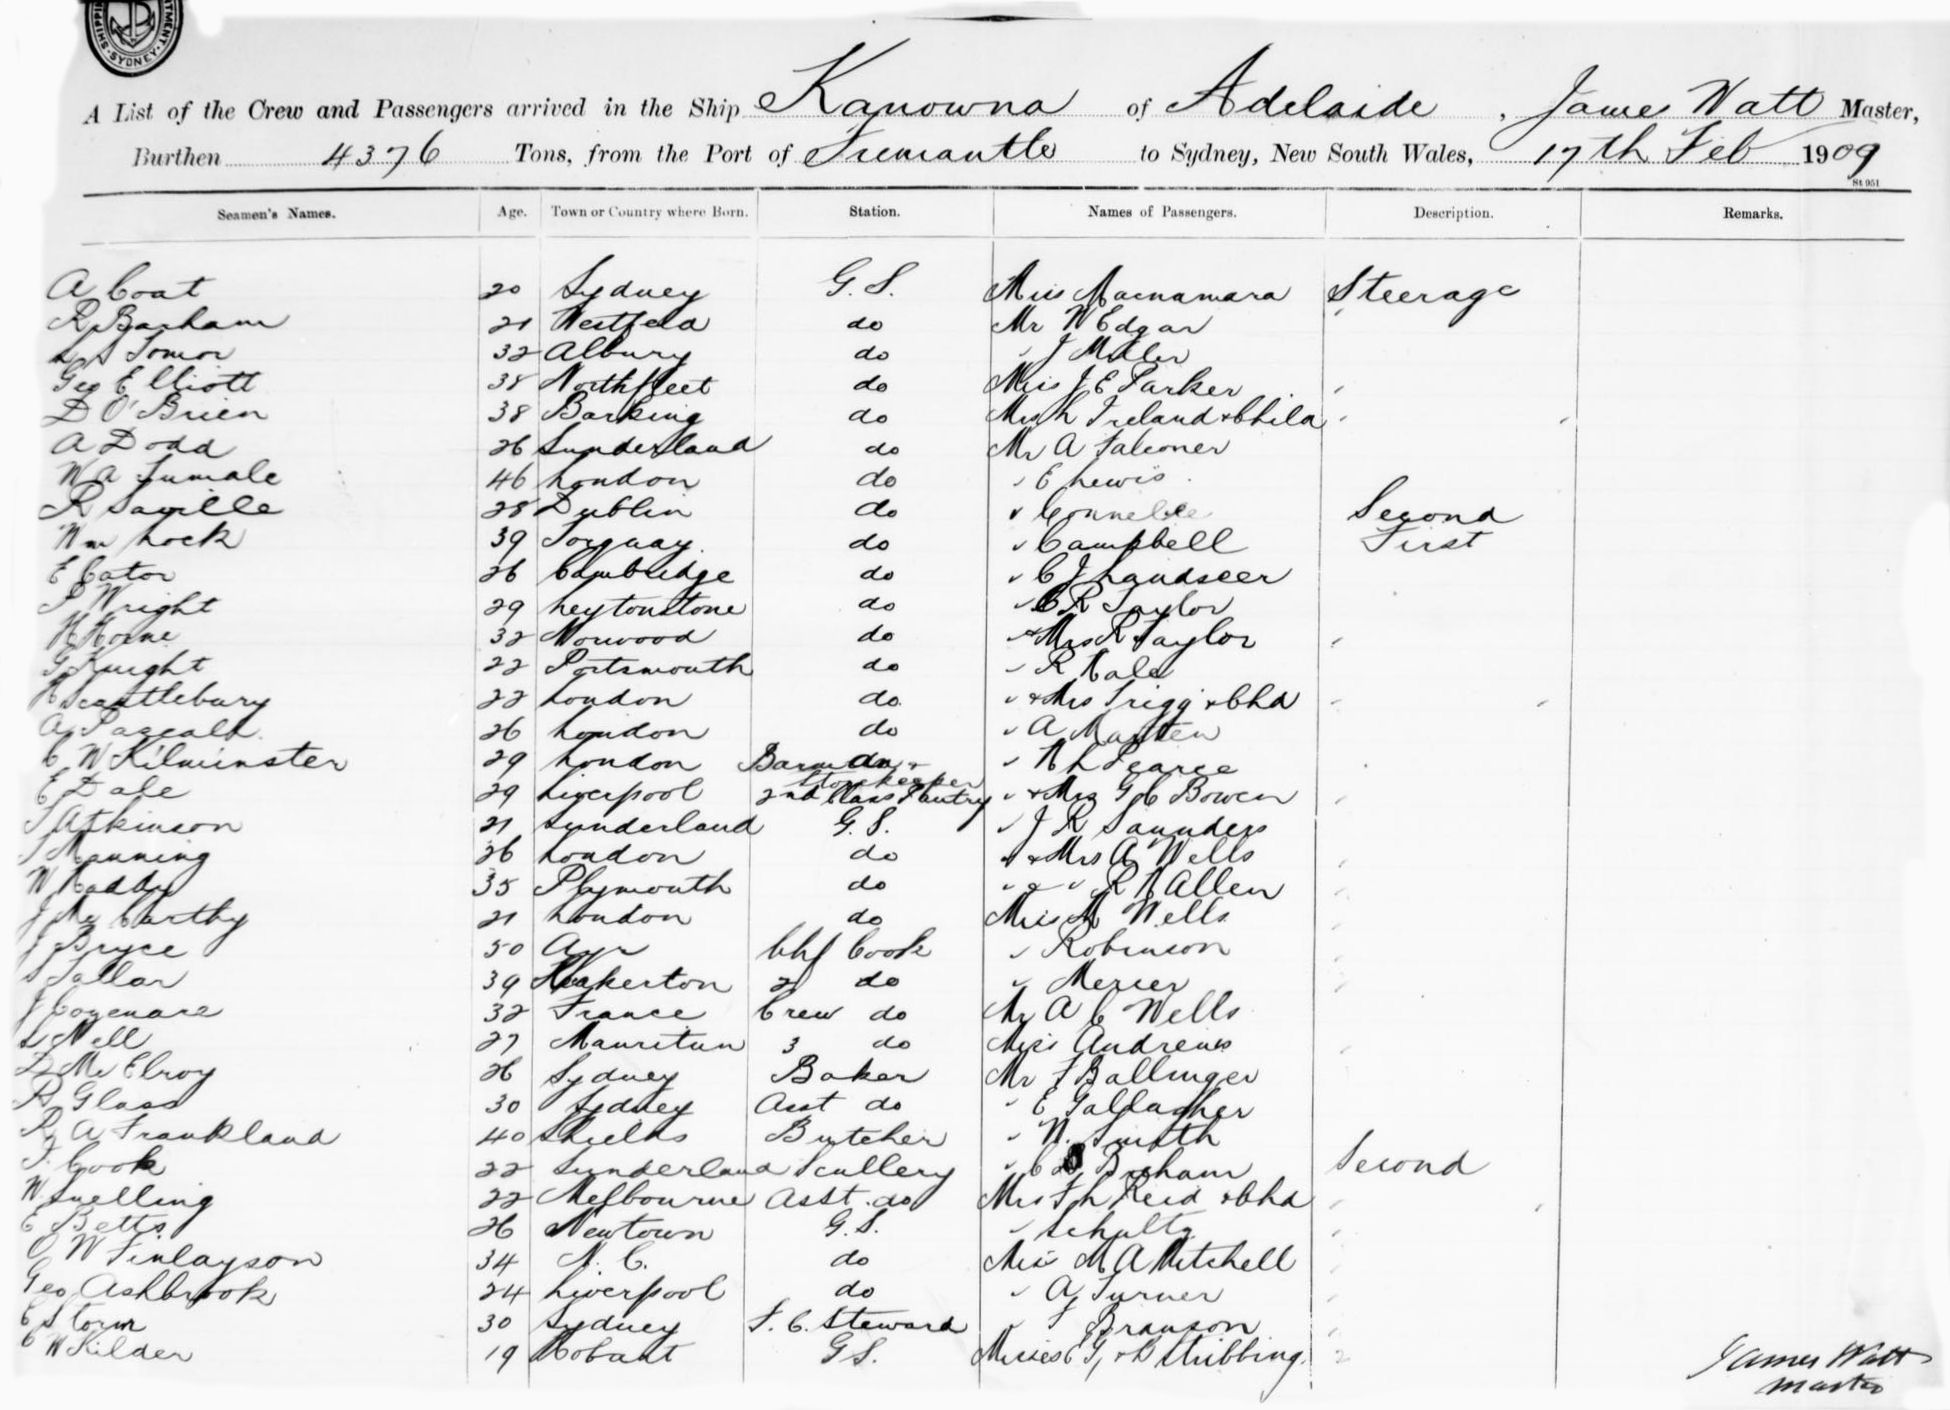 SHIPPING
SYDNEY
A List of the Crew and Passengers arrived in the Ship Kanowna of Adelaide, James Watt Master,
Burthen 4376 Tons, from the Port of Fremantle to Sydney, New South Wales, 17th Feb 1909
St 951
Seamen's Names. Age. Town or Country where Born. Station. Names of Passengers. Description. Remarks.
A Coat 20 Sydney G.S. Miss Macnamara Steerage
R Barham 21 do Mr W Edgar
Tomor 32 Albury do " J Miller
Geo Elliott 38 Northfleet do Miss J E Parker
D O'Brien 38 Barking do Mrs L Ireland & Child
A Dodd 26 Sunderland do Mr A Falconer
W A 46 London do " E Lewis
R Saville 28 Dublin do " Second
Wm Lock 39 Torquay do " Campbell First
E Cator 26 Cambridge do " C J Landseer
P Wright 29 Leytonstone do " C R Taylor
H Horne 32 Norwood do " & Mrs R Taylor
G Knight 22 Portsmouth do " R Hale
H Scantlebury 22 London do " & Mrs Trigg & Chd
A 26 London do " A
C W Kilminster 29 London Barman & Storekeeper " H L Pearce
E Dale 29 Liverpool 2nd Class Pantry " & Mrs G C Bowen
T Atkinson 21 Sunderland G.S. " J R Saunders
T Manning 26 London do " & Mrs A Wells
W Haddy 35 Plymouth do " & " R H Allen
J McCarthy 21 London do Miss M Wells
J Bryce 50 Ayr Chf Cook " Robinson
S 39 2 do " Mercer
J 32 France Crew do Mr A C Wells
L Nell 27 3 do Miss Andrews
D McElroy 26 Sydney Baker Mr F Ballinger
R Glass 30 Sydney Asst do " E Gallagher
R A Frankland 40 Shields Butcher " N. Smith
T. Cook 22 Sunderland Scullery " C Second
W Snelling 22 Melbourne Asst. do Mrs F L Reid & Chd
E Betts 26 Newtown G.S. " Schultz
O W Finlayson 34 N. C. do Miss M A Mitchell
Geo Ashbrook 24 Liverpool do " A Turner
E Storm 30 Sydney F. C. Steward " F Branson
C W Kilder 19 Hobart G S. Misses C G, & D Stribbing
James Watt
Master